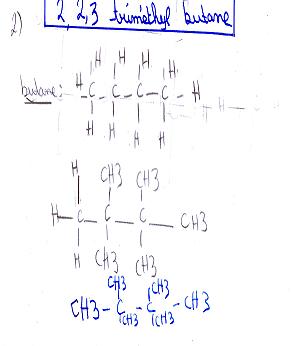 2) 2,2,3 trimethyl butane
H H H H
butane: H - C - C - C - C - H
H H H H
H CH3 CH3
H - C - C - C - CH3
H CH3 CH3
CH3 CH3
CH3 - C - C - CH3
CH3 CH3